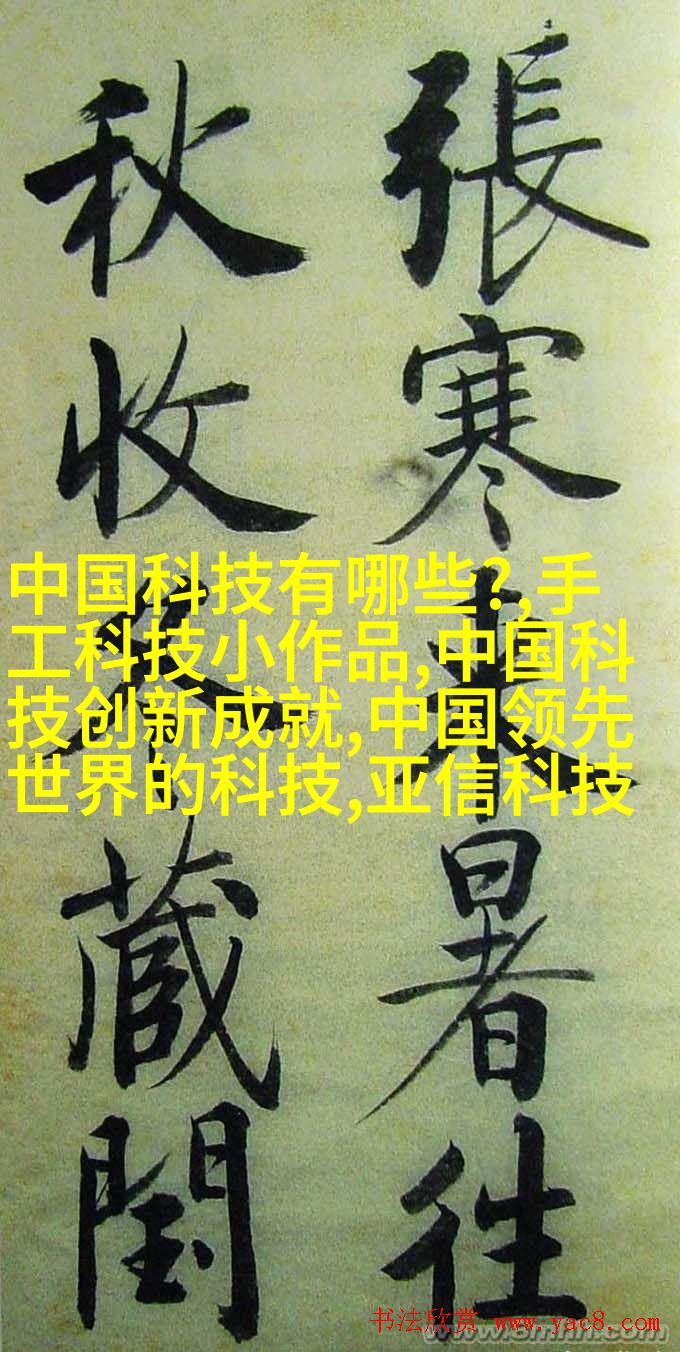 張寒来暑往
秋收冬藏閏
中国科技有哪些?,手
工科技小作品,中国科
技创新成就,中国领先
世界的科技,亚信科技
书法欣赏 www.yac8.com